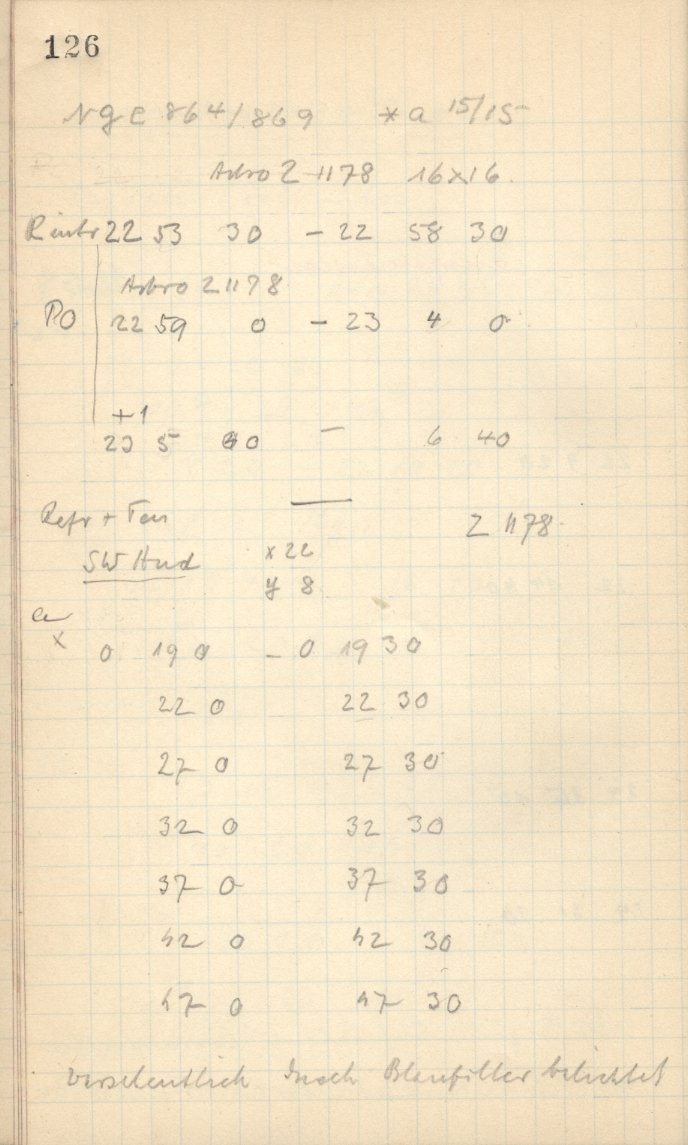 126
NgC 864/869 * a 15/15
Astro Z 1178 16x16.
22 53 30 - 22 58 30
Astro Z 1178
PO 22 59 0 - 23 4 0
+1
23 5 40 - 6 40
—
Refr + Z 1178
SW Hud x 22
y 8
a
x 0 19 0 - 0 19 30
22 0 22 30
27 0 27 30
32 0 32 30
37 0 37 30
42 0 42 30
47 0 47 30
versehentlich durch Blaufilter belichtet